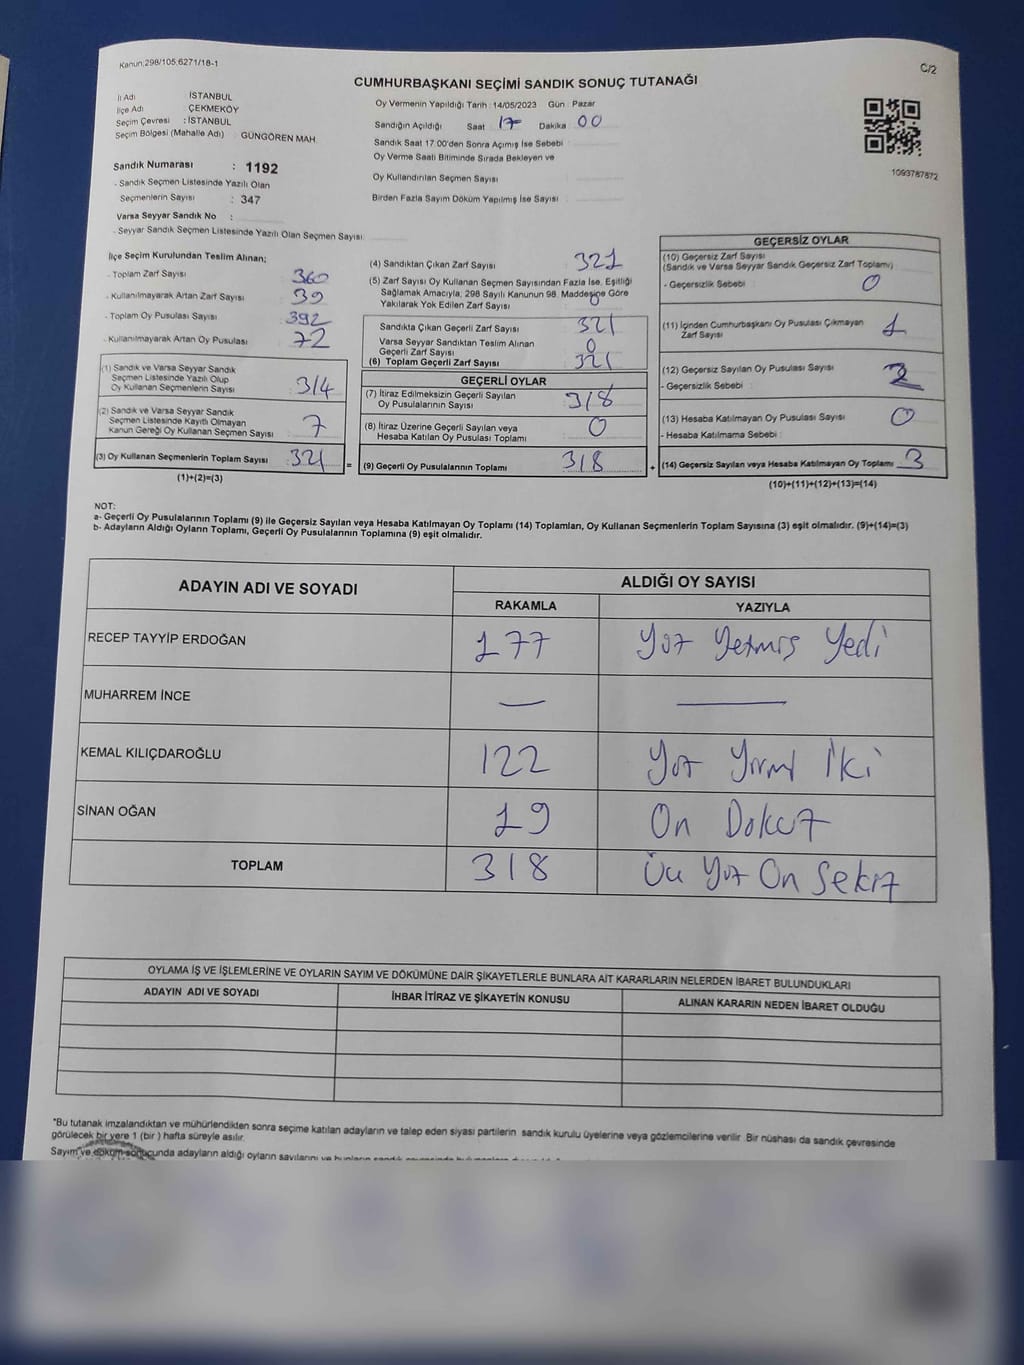 Kanun:298/105,6271/18-1
C/2
CUMHURBAŞKANI SEÇİMİ SANDIK SONUÇ TUTANAĞI
İl Adı İSTANBUL
İlçe Adı ÇEKMEKÖY
Seçim Çevresi : İSTANBUL
Seçim Bölgesi (Mahalle Adı) : GÜNGÖREN MAH.
Sandık Numarası : 1192
- Sandık Seçmen Listesinde Yazılı Olan
Seçmenlerin Sayısı : 347
Varsa Seyyar Sandık No :
- Seyyar Sandık Seçmen Listesinde Yazılı Olan Seçmen Sayısı:
Oy Vermenin Yapıldığı Tarih : 14/05/2023 Gün : Pazar
Sandığın Açıldığı Saat 17 Dakika 00
Sandık Saat 17.00'den Sonra Açılmış İse Sebebi :
Oy Verme Saati Bitiminde Sırada Bekleyen ve
Oy Kullandırılan Seçmen Sayısı :
Birden Fazla Sayım Döküm Yapılmış İse Sayısı :
1093787872
İlçe Seçim Kurulundan Teslim Alınan;
- Toplam Zarf Sayısı : 360
- Kullanılmayarak Artan Zarf Sayısı : 39
- Toplam Oy Pusulası Sayısı : 392
- Kullanılmayarak Artan Oy Pusulası : 72
(1) Sandık ve Varsa Seyyar Sandık
Seçmen Listesinde Yazılı Olup
Oy Kullanan Seçmenlerin Sayısı : 314
(2) Sandık ve Varsa Seyyar Sandık
Seçmen Listesinde Kayıtlı Olmayan
Kanun Gereği Oy Kullanan Seçmen Sayısı : 7
(3) Oy Kullanan Seçmenlerin Toplam Sayısı : 321 =
(1)+(2)=(3)
(4) Sandıktan Çıkan Zarf Sayısı : 321
(5) Zarf Sayısı Oy Kullanan Seçmen Sayısından Fazla İse, Eşitliği
Sağlamak Amacıyla, 298 Sayılı Kanunun 98. Maddesine Göre
Yakılarak Yok Edilen Zarf Sayısı : 0
Sandıkta Çıkan Geçerli Zarf Sayısı : 321
Varsa Seyyar Sandıktan Teslim Alınan
Geçerli Zarf Sayısı : 0
(6) Toplam Geçerli Zarf Sayısı : 321
GEÇERLİ OYLAR
(7) İtiraz Edilmeksizin Geçerli Sayılan
Oy Pusulalarının Sayısı : 318
(8) İtiraz Üzerine Geçerli Sayılan veya
Hesaba Katılan Oy Pusulası Toplamı : 0
(9) Geçerli Oy Pusulalarının Toplamı : 318 +
GEÇERSİZ OYLAR
(10) Geçersiz Zarf Sayısı
(Sandık ve Varsa Seyyar Sandık Geçersiz Zarf Toplamı)
- Geçersizlik Sebebi : 0
(11) İçinden Cumhurbaşkanı Oy Pusulası Çıkmayan
Zarf Sayısı : 1
(12) Geçersiz Sayılan Oy Pusulası Sayısı : 2
- Geçersizlik Sebebi :
(13) Hesaba Katılmayan Oy Pusulası Sayısı : 0
- Hesaba Katılmama Sebebi :
(14) Geçersiz Sayılan veya Hesaba Katılmayan Oy Toplamı : 3
(10)+(11)+(12)+(13)=(14)
NOT:
a- Geçerli Oy Pusulalarının Toplamı (9) ile Geçersiz Sayılan veya Hesaba Katılmayan Oy Toplamı (14) Toplamları, Oy Kullanan Seçmenlerin Toplam Sayısına (3) eşit olmalıdır. (9)+(14)=(3)
b- Adayların Aldığı Oyların Toplamı, Geçerli Oy Pusulalarının Toplamına (9) eşit olmalıdır.
ADAYIN ADI VE SOYADI ALDIĞI OY SAYISI
RAKAMLA YAZIYLA
RECEP TAYYİP ERDOĞAN 177 Yüz Yetmiş Yedi
MUHARREM İNCE — —
KEMAL KILIÇDAROĞLU 122 Yüz Yirmi İki
SİNAN OĞAN 19 On Dokuz
TOPLAM 318 Üç Yüz On Sekiz
OYLAMA İŞ VE İŞLEMLERİNE VE OYLARIN SAYIM VE DÖKÜMÜNE DAİR ŞİKAYETLERLE BUNLARA AİT KARARLARIN NELERDEN İBARET BULUNDUKLARI
ADAYIN ADI VE SOYADI İHBAR İTİRAZ VE ŞİKAYETİN KONUSU ALINAN KARARIN NEDEN İBARET OLDUĞU
*Bu tutanak imzalandıktan ve mühürlendikten sonra seçime katılan adayların ve talep eden siyasi partilerin sandık kurulu üyelerine veya gözlemcilerine verilir. Bir nüshası da sandık çevresinde
görülecek bir yere 1 (bir) hafta süreyle asılır.
Sayım ve döküm sonucunda adayların aldığı oyların sayılarını ve bunların